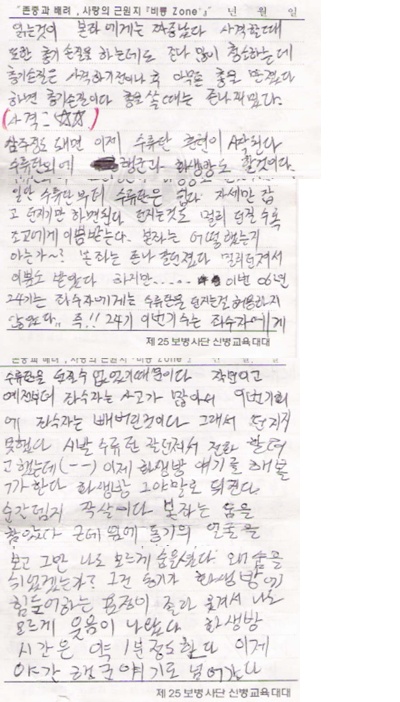 "존중과 배려, 사랑의 근원지『비룡 Zone』" 년 월 일
읽는것이 본좌에게는 짜증났다 사격할때
또한 총기 손질을 하는데도 존나 많이 항소하는데
총기손질은 사격하기전이나 혹 아무튼 총을 만졌다
하면 총기손질이다 총을 쏠 때는 존나 재밌다.
(사격 = ☆☆)
3주정도 되면 이제 수류탄 훈련이 시작된다
수류탄외에 행군과 화생방도 할것이다.
일단 수류탄부터 수류탄은 쉽다 자세만 잡
고 던지기만 하면된다 던지는것도 멀리 던질수록
조교에게 이쁨받는다. 본좌는 어떻했는지
아는가~? 본좌는 존나 잘던졌다 멀리던져서
이쁨도 받았다 하지만..... 이번 06년
24기는 좌수자에게는 수류탄을 던지는걸 허용하지
않았다.. 즉!! 24기 이번기수는 좌수자에게
제 25 보병사단 신병교육대대
"존중과 배려, 사랑의 근원지『비룡 Zone』" 년 월 일
수류탄을 던질수 없었기때문이다 작년이고
예전부터 좌수자는 사고가 많아서 이번기회
에 좌수자는 빼버린것이다 그래서 던지지
못했다 시발 수류탄 잘던져서 전화 할려
고 했는데(--) 이제 화생방 얘기를 해볼
가 한다 화생방 그야말로 뒤진다
순간덤지 작살이다 본좌는 숨을
참았다 근데 옆에 동기의 얼굴을
보고 그만 나도 모르게 숨을쉈다 왜 숨을
쉬었겠는가? 그건 동기가 화생방에
힘들어하는 표정이 졸라 웃겨서 나도
모르게 웃음이 나왔다 화생방
시간은 약 1분정도한다 이제
야간 행군 얘기로 넘어간다
제 25 보병사단 신병교육대대